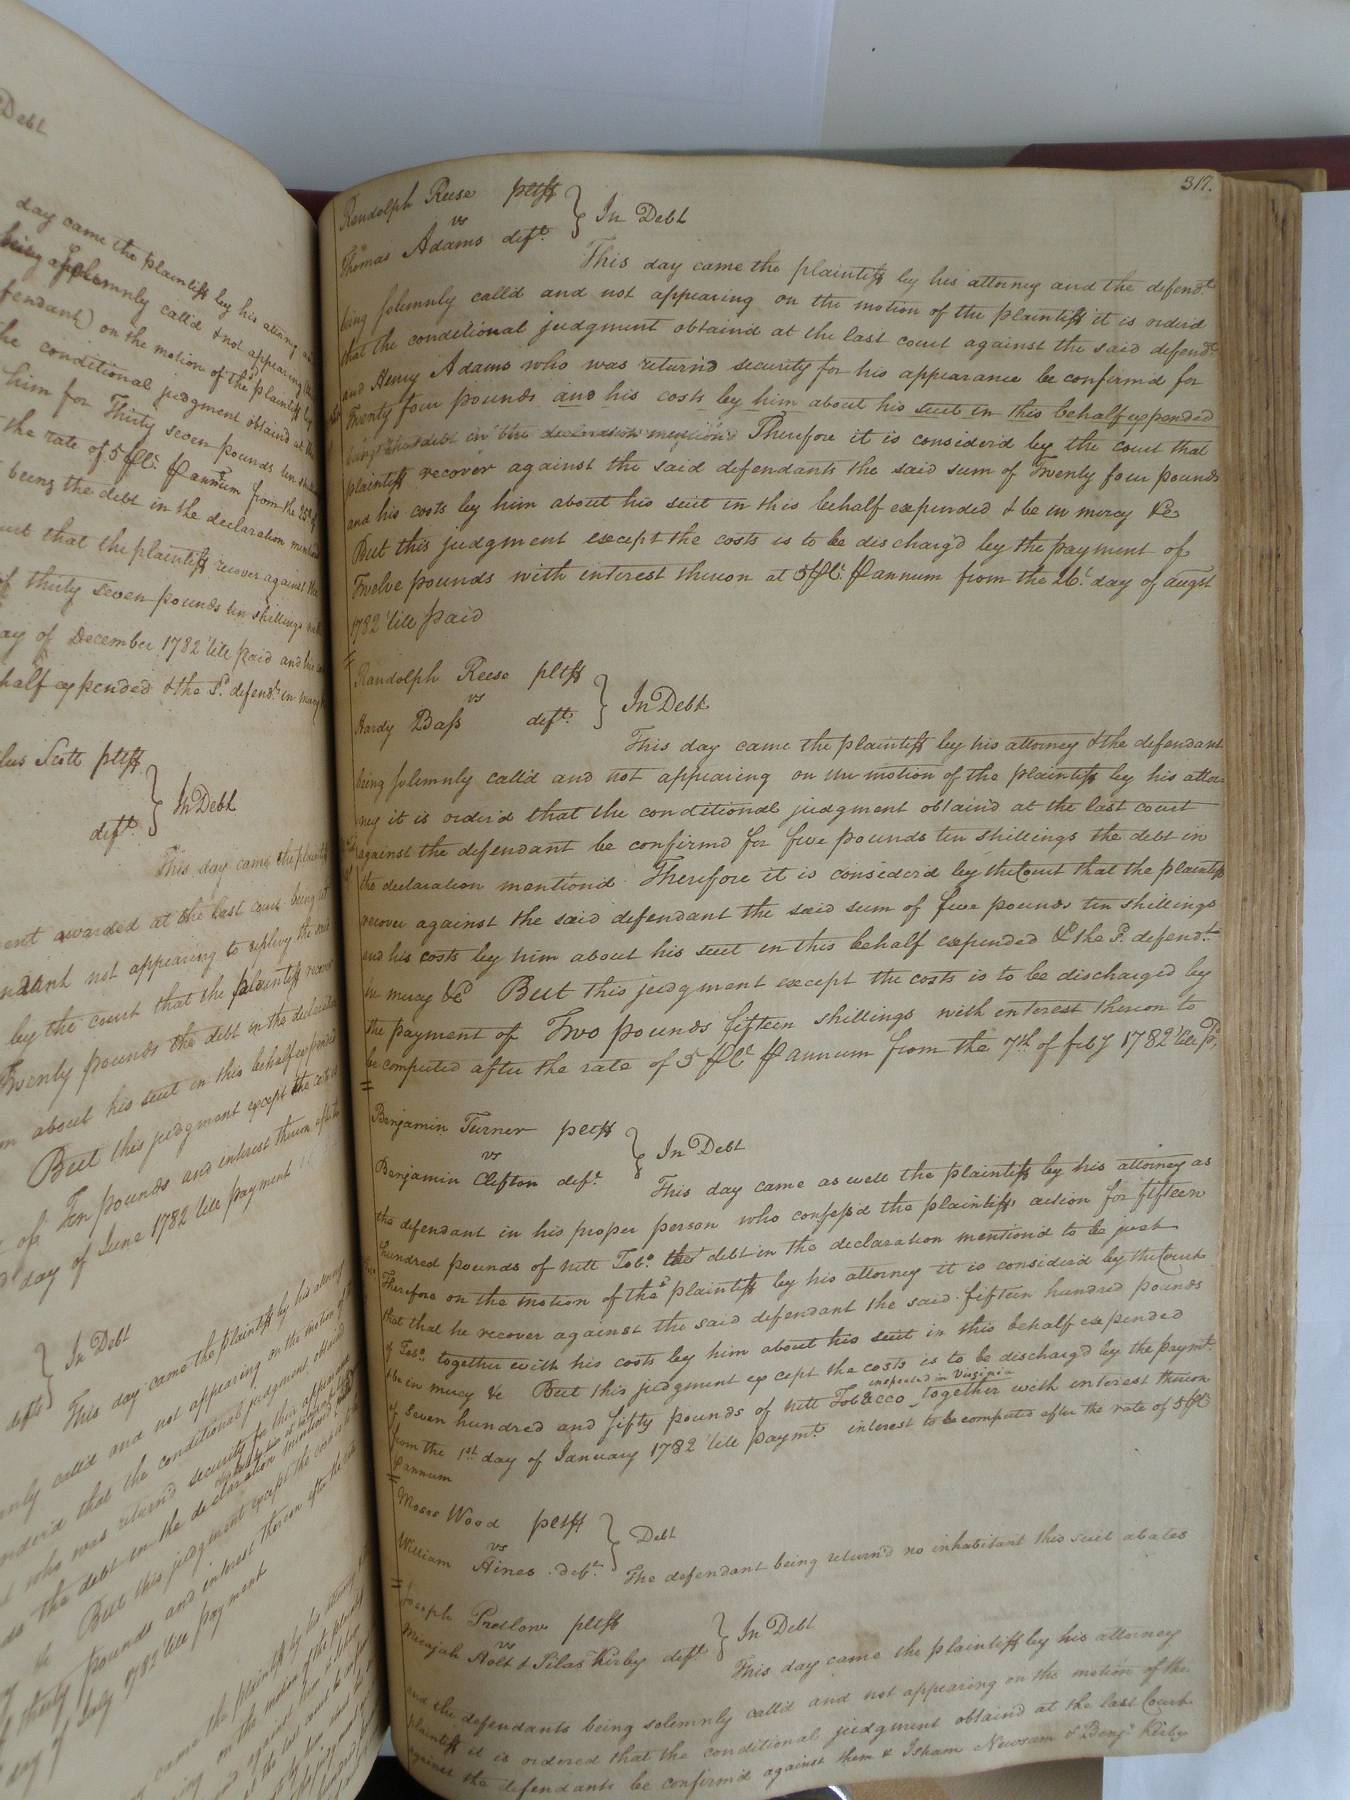 Debt
day came the plaintiff by his attorney
being solemnly call'd & not appearing
fendant) on the motion of the plaintiff by
he conditional judgment obtaind at the
him for Thirty seven pounds ten
the rate of 5 ⅌Ct. ⅌ annum from the 25th
being the debt in the declaration
urt that the plaintiff recover against the
f thirty seven pounds ten shillings
ay of December 1782 'till paid and his
half expended & the Sd. defendt. in mercy
lus Scott pltff
deft. } In Debt
This day came the plaintiff
ent awarded at the last court being
ndant not appearing to replevy the said
by the court that the plaintiff recover
Twenty pounds the debt in the declaration
m about his suit in this behalf expended
But this judgment except the costs is
t of Ten pounds and interest thereon
day of June 1782 'till payment
defts } In Debt
This day came the plaintiff by his attorney
mnly call'd and not appearing on the motion of
rderd that the conditional judgment obtaind
who was returnd security for his appearance
the debt in the declaration mentiond
But this judgment except the costs
thirty pounds and interest thereon
day of July 1782 'till payment
came the plaintiff by his attorney
317.
Randolph Reese pltff
vs } In Debt
Thomas Adams deft.
This day came the plaintiff by his attorney and the defendt.
being solemnly call'd and not appearing on the motion of the plaintiff it is orderd
that the conditional judgment obtaind at the last court against the said defendt.
and Henry Adams who was return'd security for his appearance be confirm'd for
Twenty four pounds and his costs by him about his suit in this behalf expended
being the debt in the declaration mention'd Therefore it is consider'd by the court that
plaintiff recover against the said defendants the said sum of Twenty four pounds
and his costs by him about his suit in this behalf expended & be in mercy &c
But this judgment except the costs is to be discharg'd by the payment of
Twelve pounds with interest thereon at 5 ⅌Ct. ⅌ annum from the 26t. day of augst
1782 'till paid
Randolph Reese pltff
vs } In Debt
Hardy Bass deft.
This day came the plaintiff by his attorney & the defendant
being solemnly call'd and not appearing on the motion of the plaintiff by his attor-
ney it is order'd that the conditional judgment obtain'd at the last court
against the defendant be confirm'd for five pounds ten shillings the debt in
the declaration mention'd Therefore it is consider'd by the Court that the plaintiff
recover against the said defendant the said sum of five pounds ten shillings
and his costs by him about his suit in this behalf expended & the Sd. defendt.
in mercy &c But this judgment except the costs is to be discharged by
the payment of Two pounds fifteen shillings with interest thereon to
be computed after the rate of 5 ⅌Ct ⅌ annum from the 7th of feby 1782 'till Pd.
Benjamin Turner pltff
vs } In Debt
Benjamin Clifton deft.
This day came as well the plaintiff by his attorney as
the defendant in his proper person who confess'd the plaintiffs action for fifteen
hundred pounds of nett Tobo. the debt in the declaration mentiond to be just
Therefore on the motion of the sd plaintiff by his attorney it is considerd by the Court
that he recover against the said defendant the said fifteen hundred pounds
of Tobo. together with his costs by him about his suit in this behalf expended
& be in mercy &c But this judgment except the costs is to be discharg'd by the paymt.
inspected in Virginia
of seven hundred and fifty pounds of nett Tobacco together with interest thereon
from the 1st day of January 1782 'till paymt. interest to be computed after the rate of 5 ⅌Ct
⅌ annum
Moses Wood pltff
vs } Debt
William Hines deft.
The defendant being return'd no inhabitant this suit abates
Joseph Pretlow pltff
vs } In Debt
Micajah Holt & Silas Kirby defts
This day came the plaintiff by his attorney
and the defendants being solemnly call'd and not appearing on the motion of the
plaintiff it is ordered that the conditional judgment obtaind at the last Court
against the defendants be confirm'd against them & Isham Newsom & Benjn. Kirby